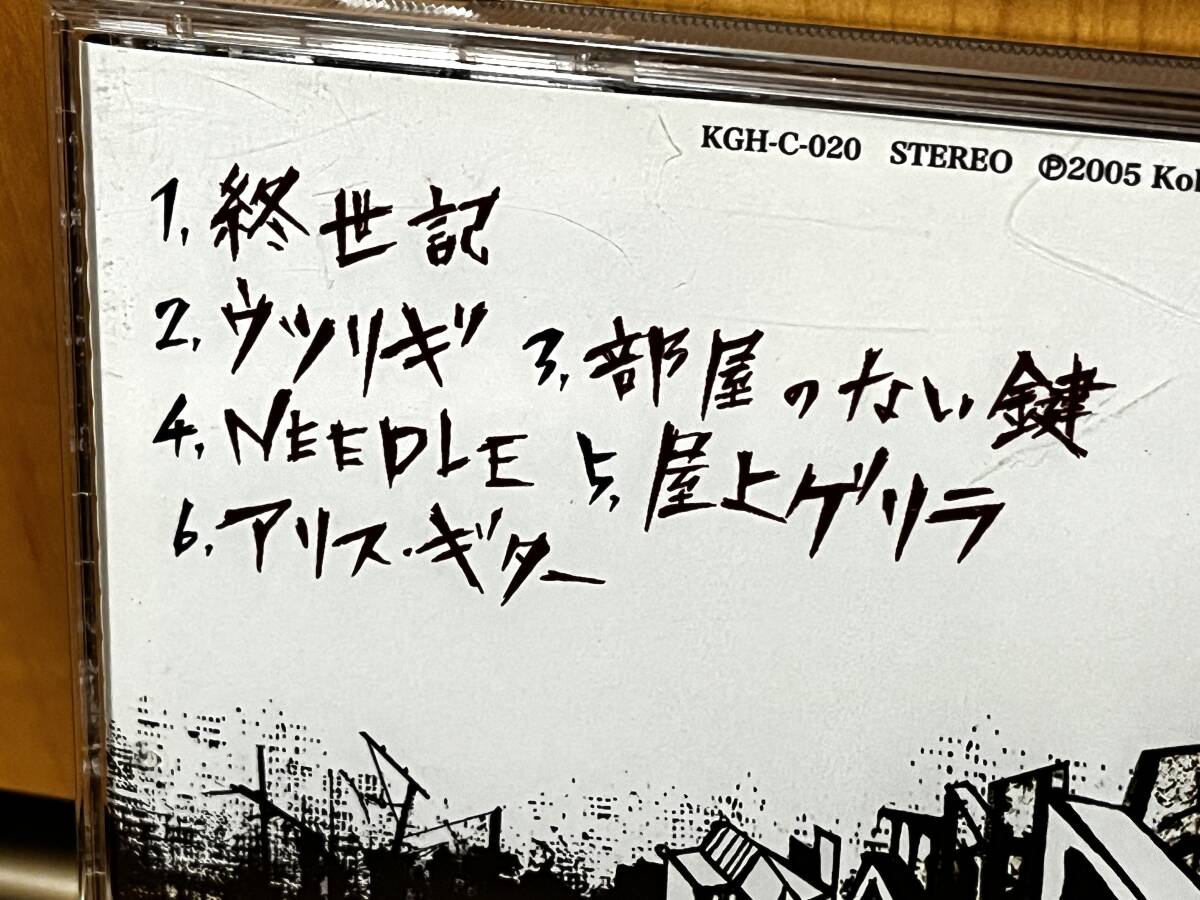 KGH-C-020 STEREO ℗2005
1. 終世記
2. ウツリギ 3. 部屋のない鍵
4. NEEDLE 5. 屋上ゲリラ
6. アリス・ギター